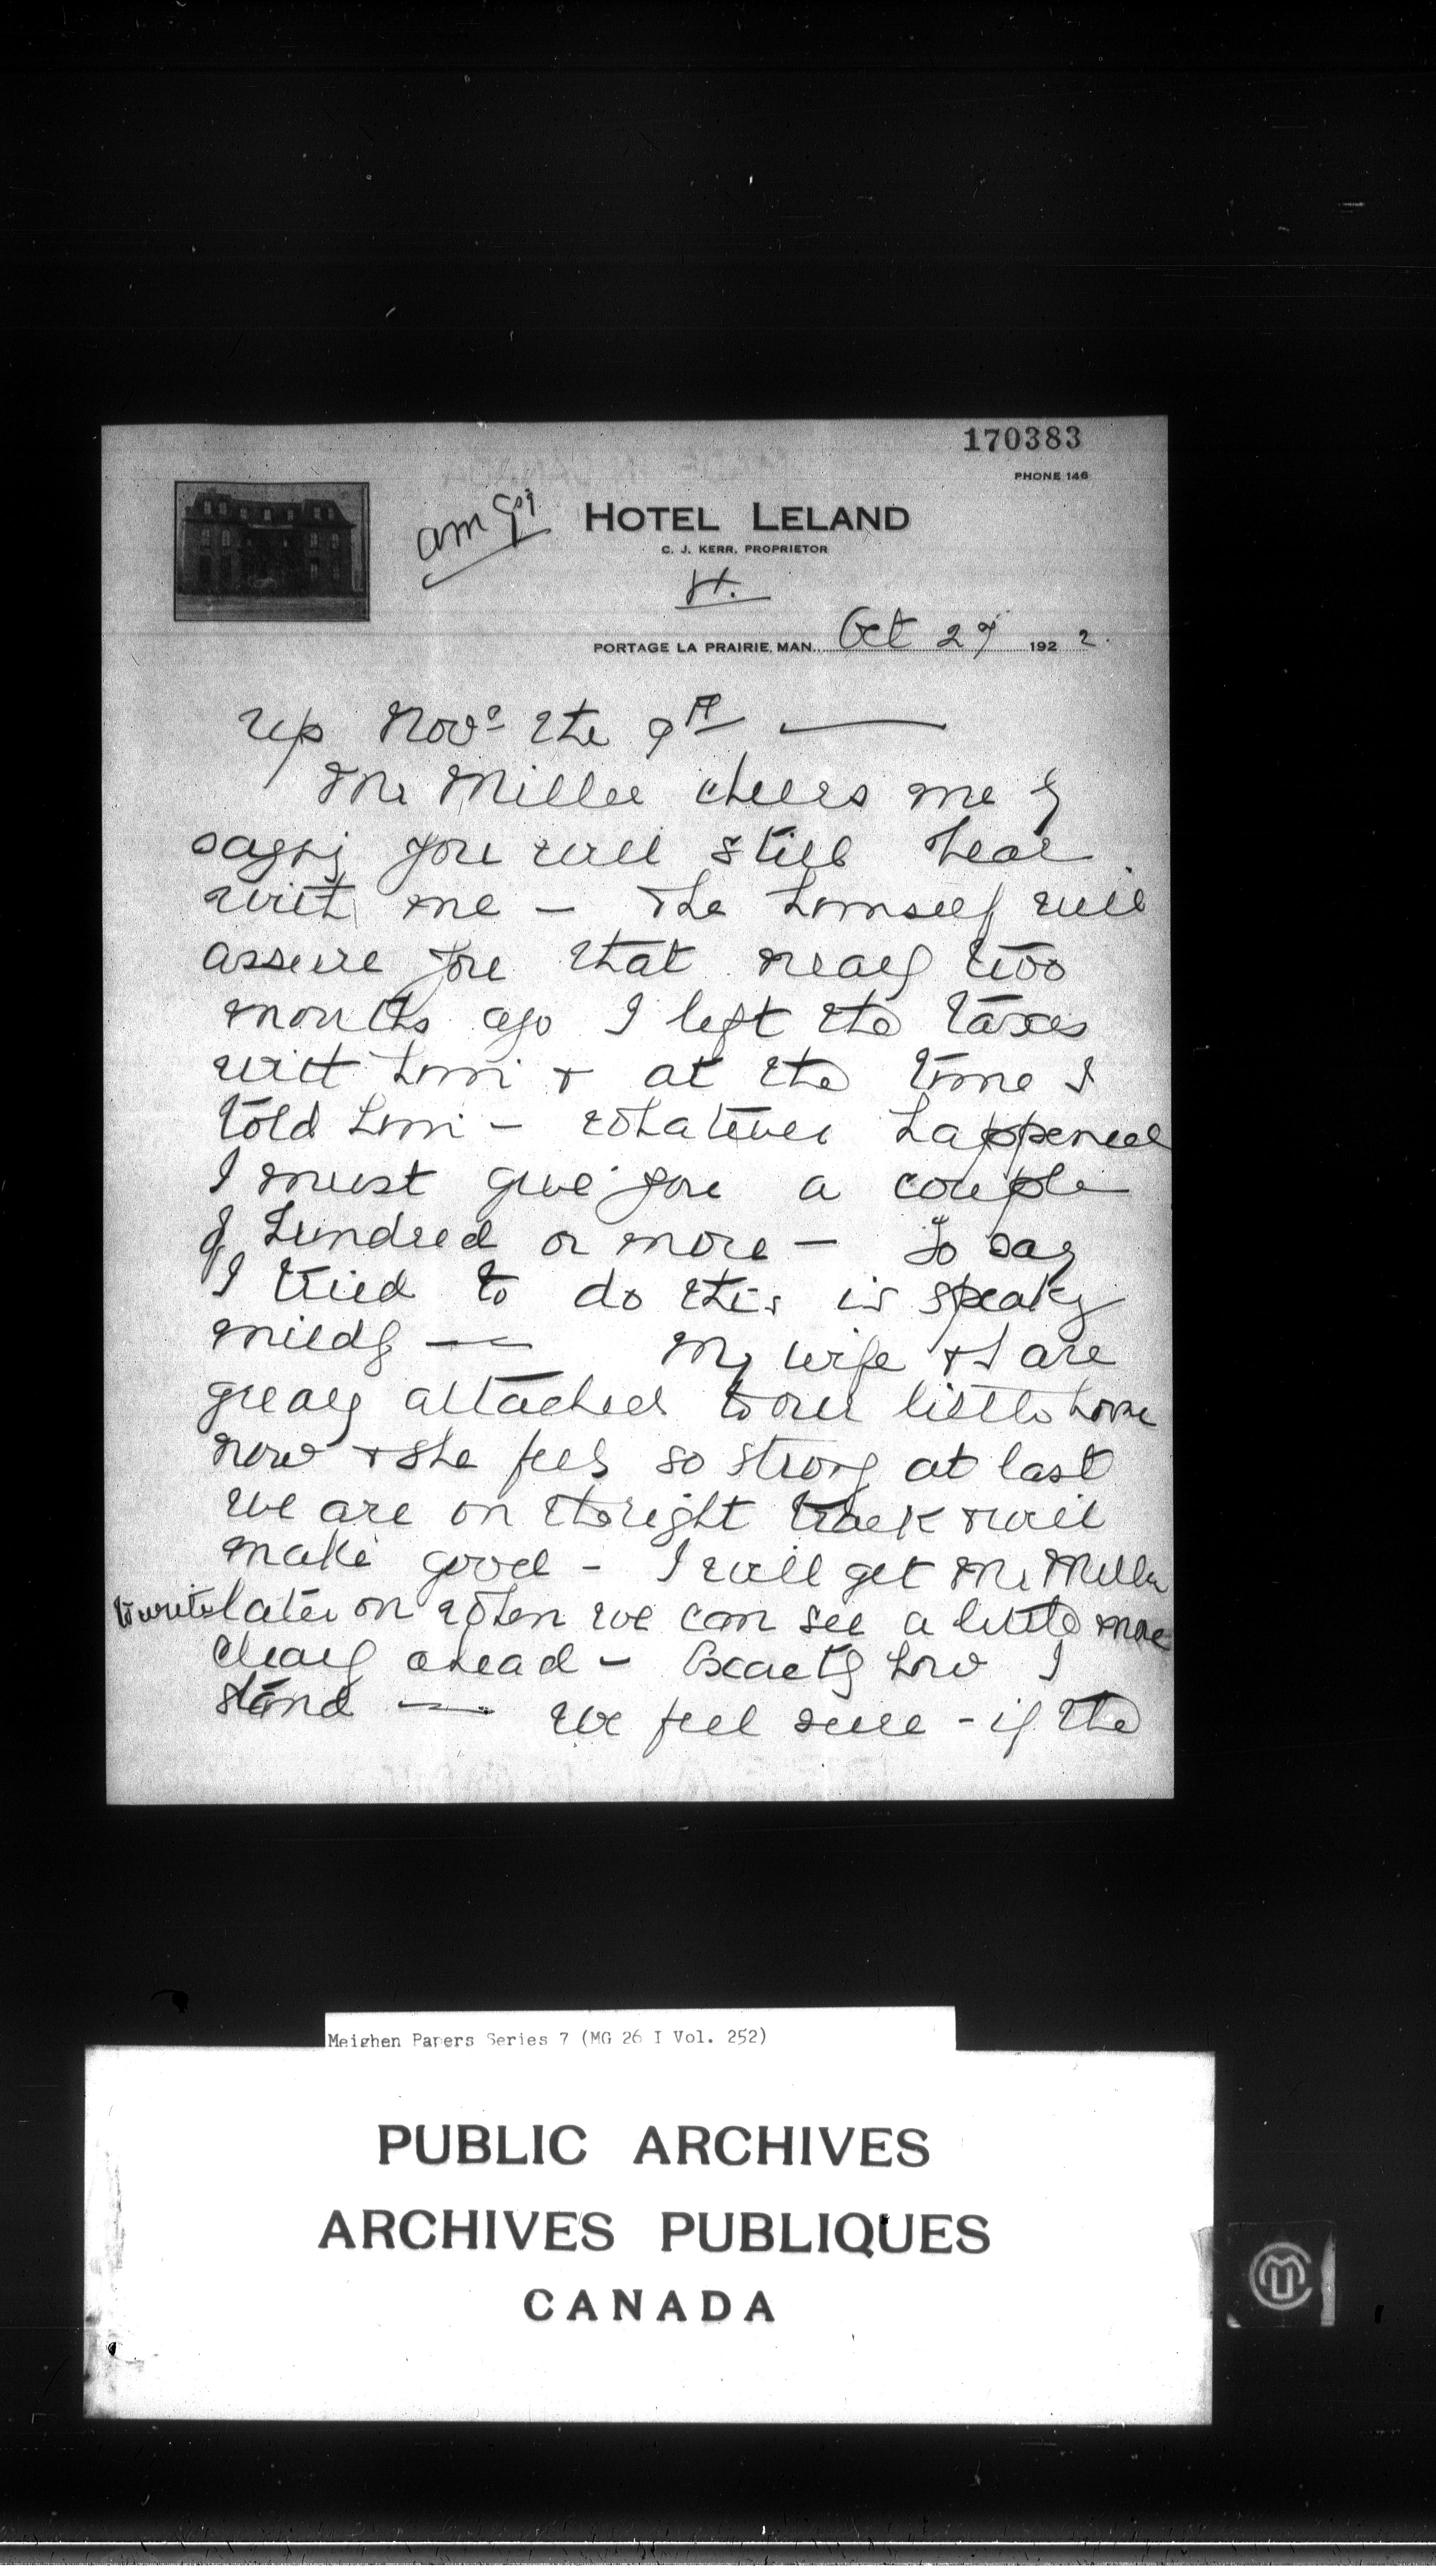 170383
PHONE 146
HOTEL LELAND
C. J. KERR, PROPRIETOR
PORTAGE LA PRAIRIE, MAN. Oct 27 1922.
up Nov. the 9th —
Mr Miller cheers me by
saying you will still bear
with me — He himself will
assure you that nearly two
months ago I left the taxes
with him & at the time I
told him — whatever happened
I must give you a couple
of hundred or more — To say
I tried to do this is speaking
mildly — My wife & I are
greatly attached to our little home
now & she feels so strong at last
we are on the right track & will
make good - I will get Mr Miller
to write later on when we can see a little more
clearly ahead — Exactly how I
stand — We feel sure - if the
Meighen Papers Series 7 (MG 26 I Vol. 252)
PUBLIC ARCHIVES
ARCHIVES PUBLIQUES
CANADA